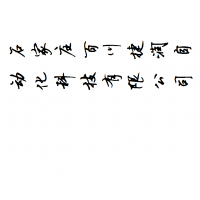 石家庄百川捷润自
动化科技有限公司